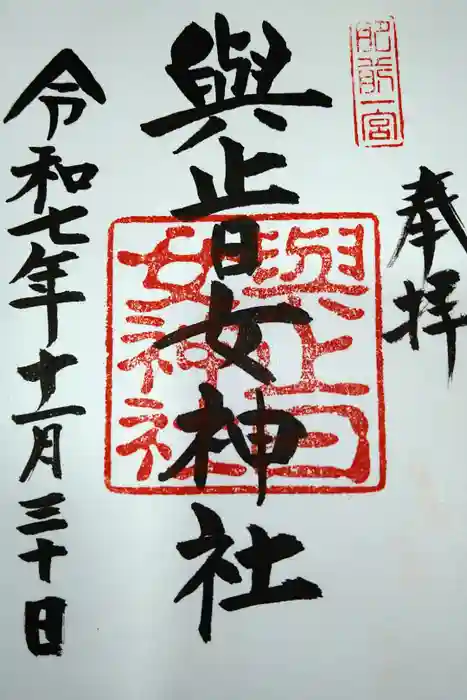 肥前一宮
奉拝
與止日女神社
與止日女神社
令和七年十一月三十日